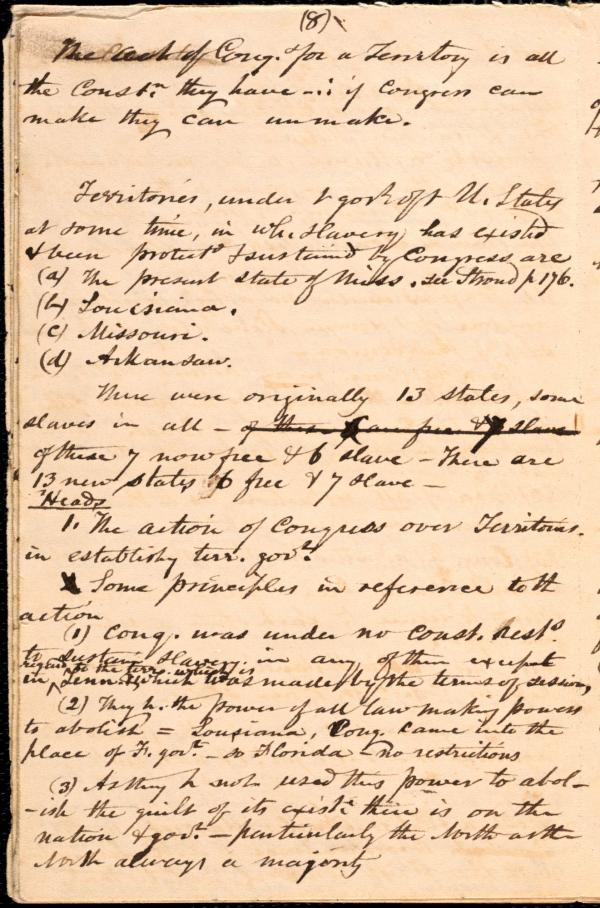 (8)
The act of Cong. for a Territory is all
the Constn. they have -∴ if Congress can
make they can unmake.
Territories, under t govt. of t U. States
at some time, in wh. slavery has existed
& been protectd & sustained by Congress are
(a) The present state of Miss. see Stroud p 176.
(b) Louisiana.
(c) Missouri.
(d) Arkansaw.
There were originally 13 states, some
slaves in all - of these are free & 7 slave
of these 7 now free & 6 slave - There are
13 new states 6 free & 7 slave -
Heads
1. The action of Congress over Territories.
in establishg terr. govt.
Some principles in reference to tt
action
(1) Cong. was under no const. rests.
to sustain slavery in any of them except
regard to the terr. which is
in Tenn. which was made by the terms of session,
(2) They h. the power of all law making powers
to abolish = Louisiana, Cong. came into the
place of F. govt. - so Florida - no restrictions
(3) As they h not used this power to abol-
-ish the guilt of its existe there is on the
nation & govt. - particularly the North as the
North always a majority